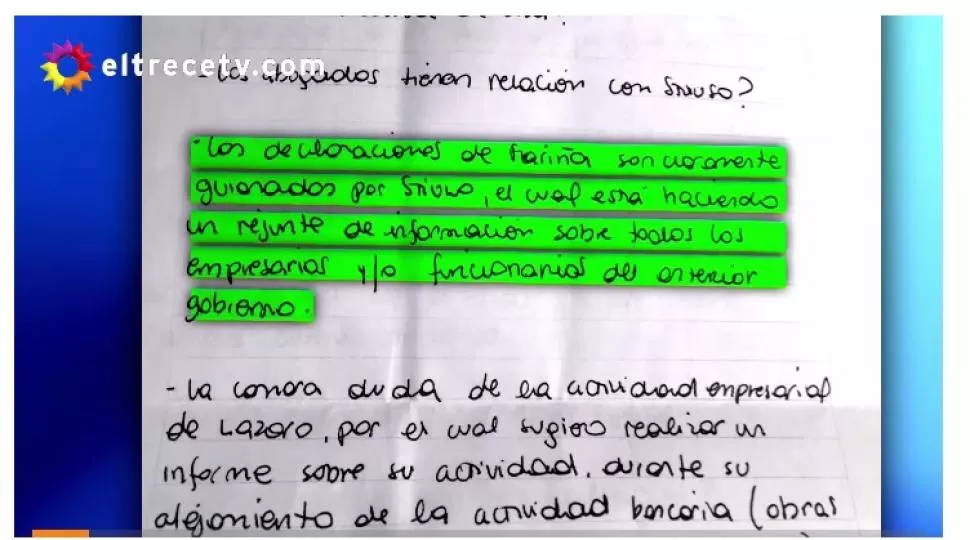 eltrecetv.com
- Los abogados tienen relación con Stiuso?
- Las declaraciones de Fariña son claramente
guionadas por Stiuso, el cual está haciendo
un rejunte de información sobre todos los
empresarios y/o funcionarios del anterior
gobierno.
- La conora duda de la actividad empresarial
de Lazaro, por el cual sugiero realizar un
informe sobre su actividad. durante su
alejamiento de la actividad bancaria (obras